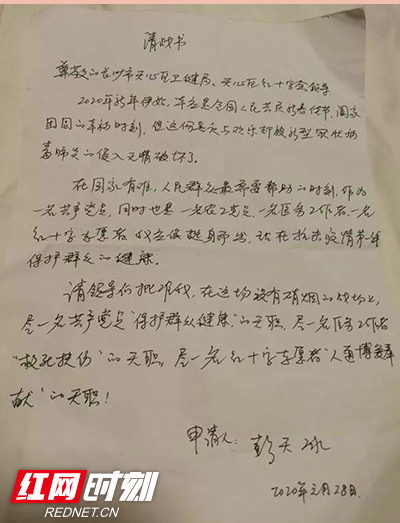 请战书
尊敬的长沙市天心区卫健局、天心区红十字会领导
2020年新年伊始,本应是全国人民共庆新春佳节,阖家
团圆的幸福时刻,但这份喜庆与欢乐却被新型冠状病
毒肺炎的侵入无情破坏了。
在国家有难,人民群众最需要帮助的时刻,作为
一名共产党员,同时也是一名农工党员,一名医务工作者,一名
红十字志愿者,我应该挺身而出,站在抗击疫情第一线
保护群众的健康。
请领导们批准我,在这场没有硝烟的战场上,
尽一名共产党员"保护群众健康"的天职,尽一名医务工作者
"救死扶伤"的天职,尽一名红十字志愿者"人道博爱奉
献"的天职!
申请人:彭天
2020年元月28日
红网时刻
REDNET.CN